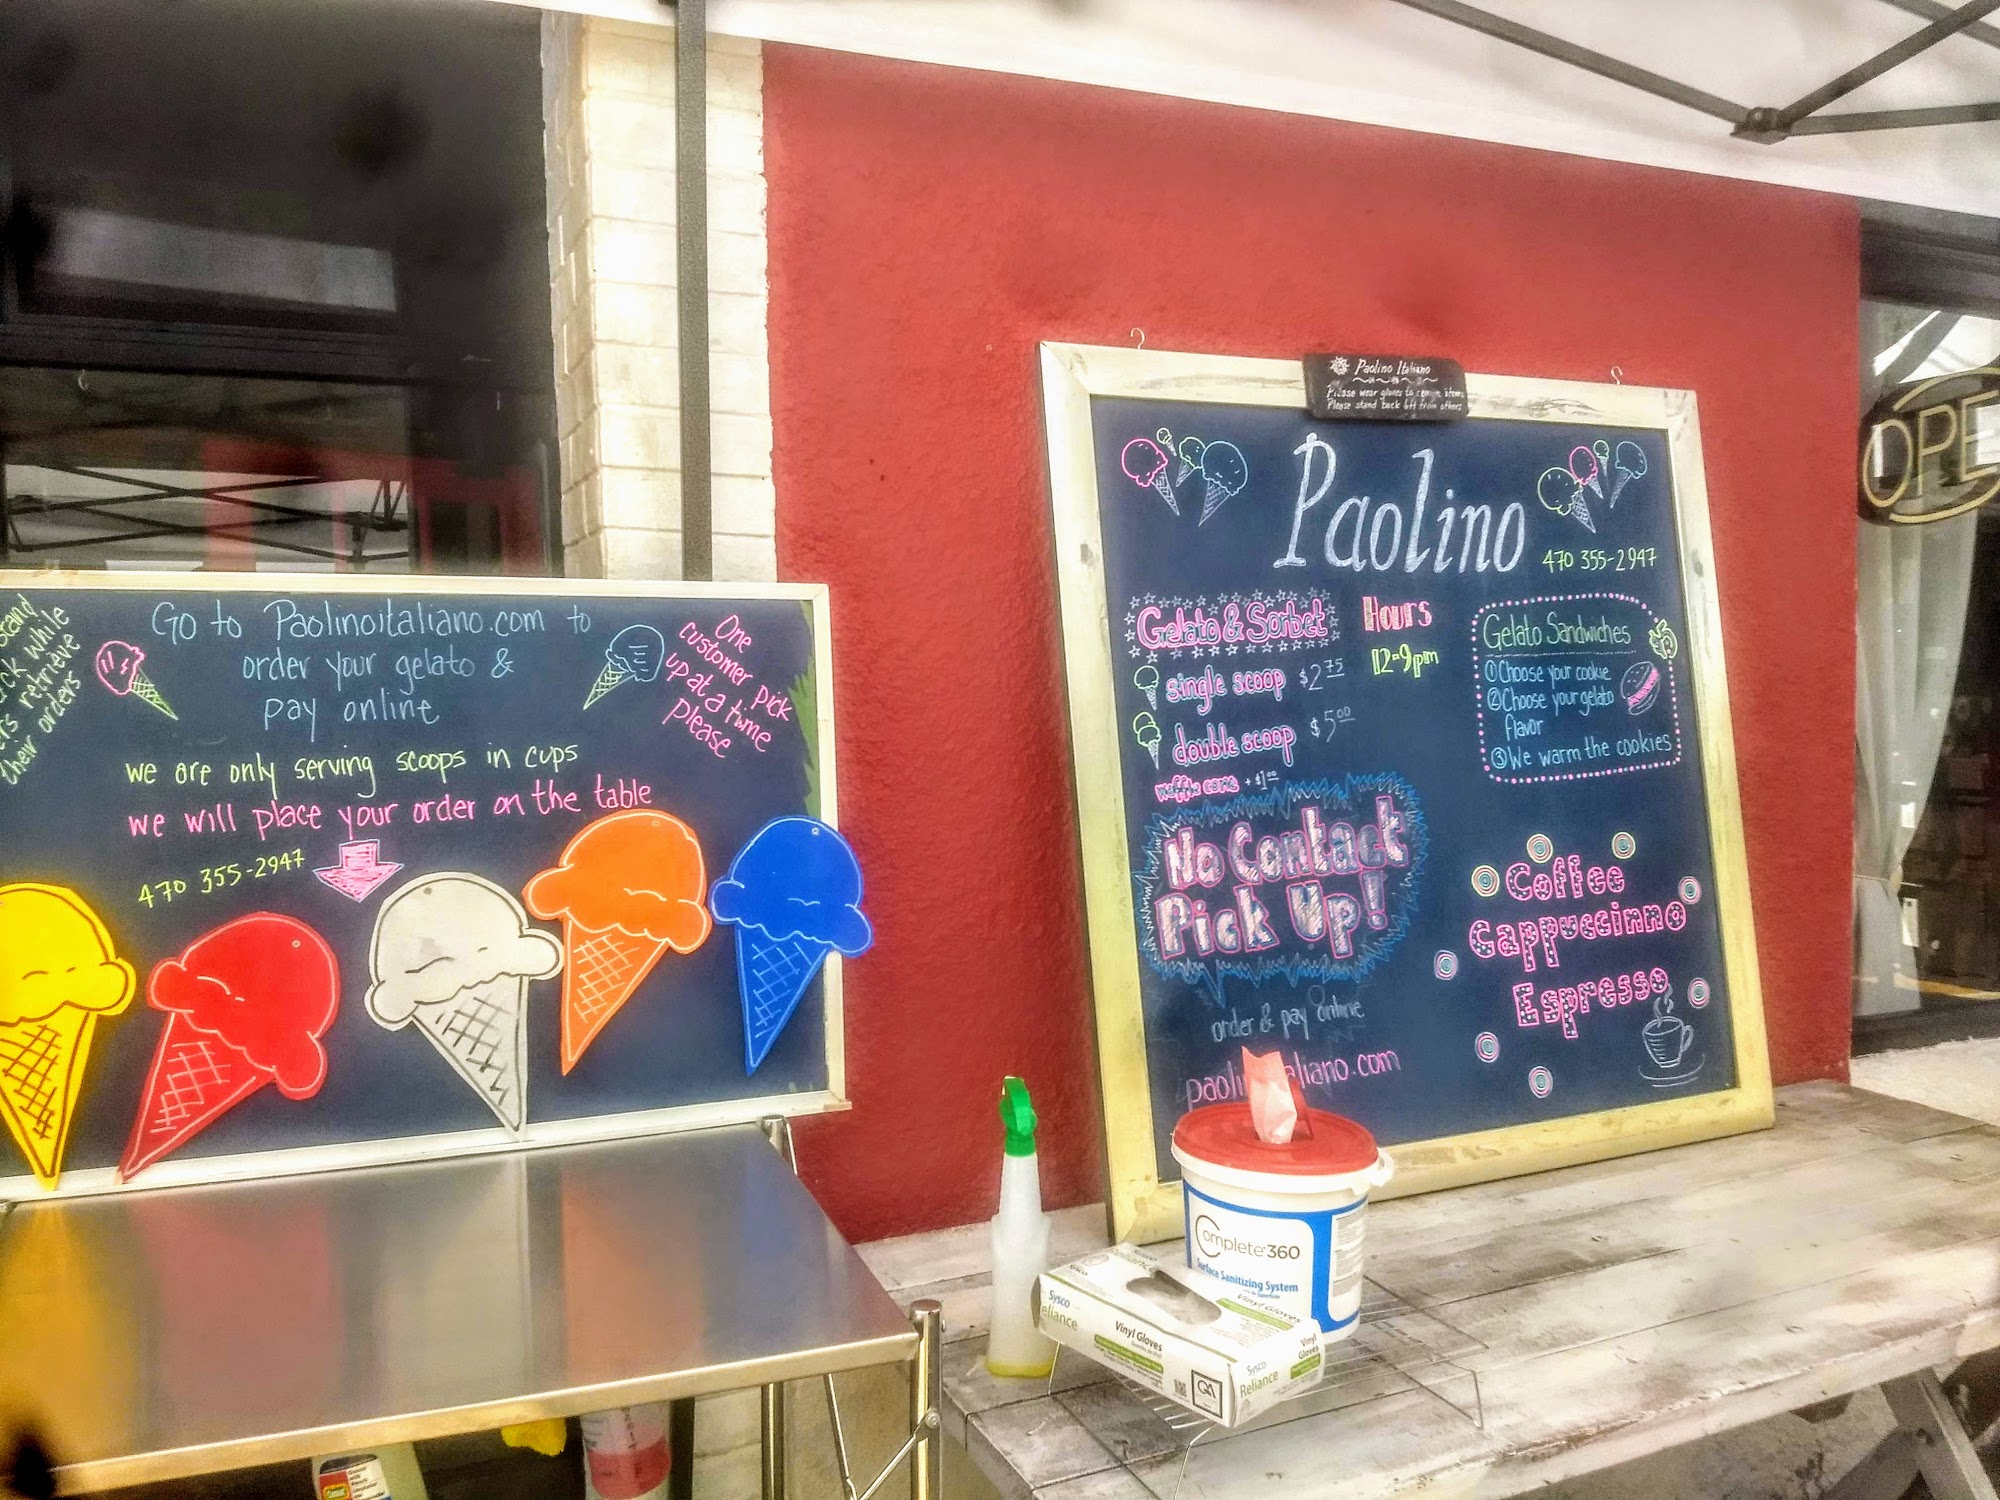 stand
while
retrieve
their orders
Go to Paolinoitaliano.com to
order your gelato &
pay online
One
customer pick
up at a time
please
we are only serving scoops in cups
we will place your order on the table
470 355-2947
Paolino Italiano
Please wear gloves to items
Please stand back 6ft from others
Paolino
470 355-2947
Gelato & Sorbet
single scoop $2 75
double scoop $5 00
waffle cone + $1 00
Hours
12-9pm
Gelato Sandwiches
① Choose your cookie
② Choose your gelato
flavor
③ We warm the cookies
No Contact
Pick Up!
order & pay online
Coffee
Cappuccinno
Espresso
OPE
Complete 360
Surface Sanitizing System
Sysco
Reliance
Vinyl Gloves
Vinyl Gloves
Vinyl
Gloves
Sysco
Reliance